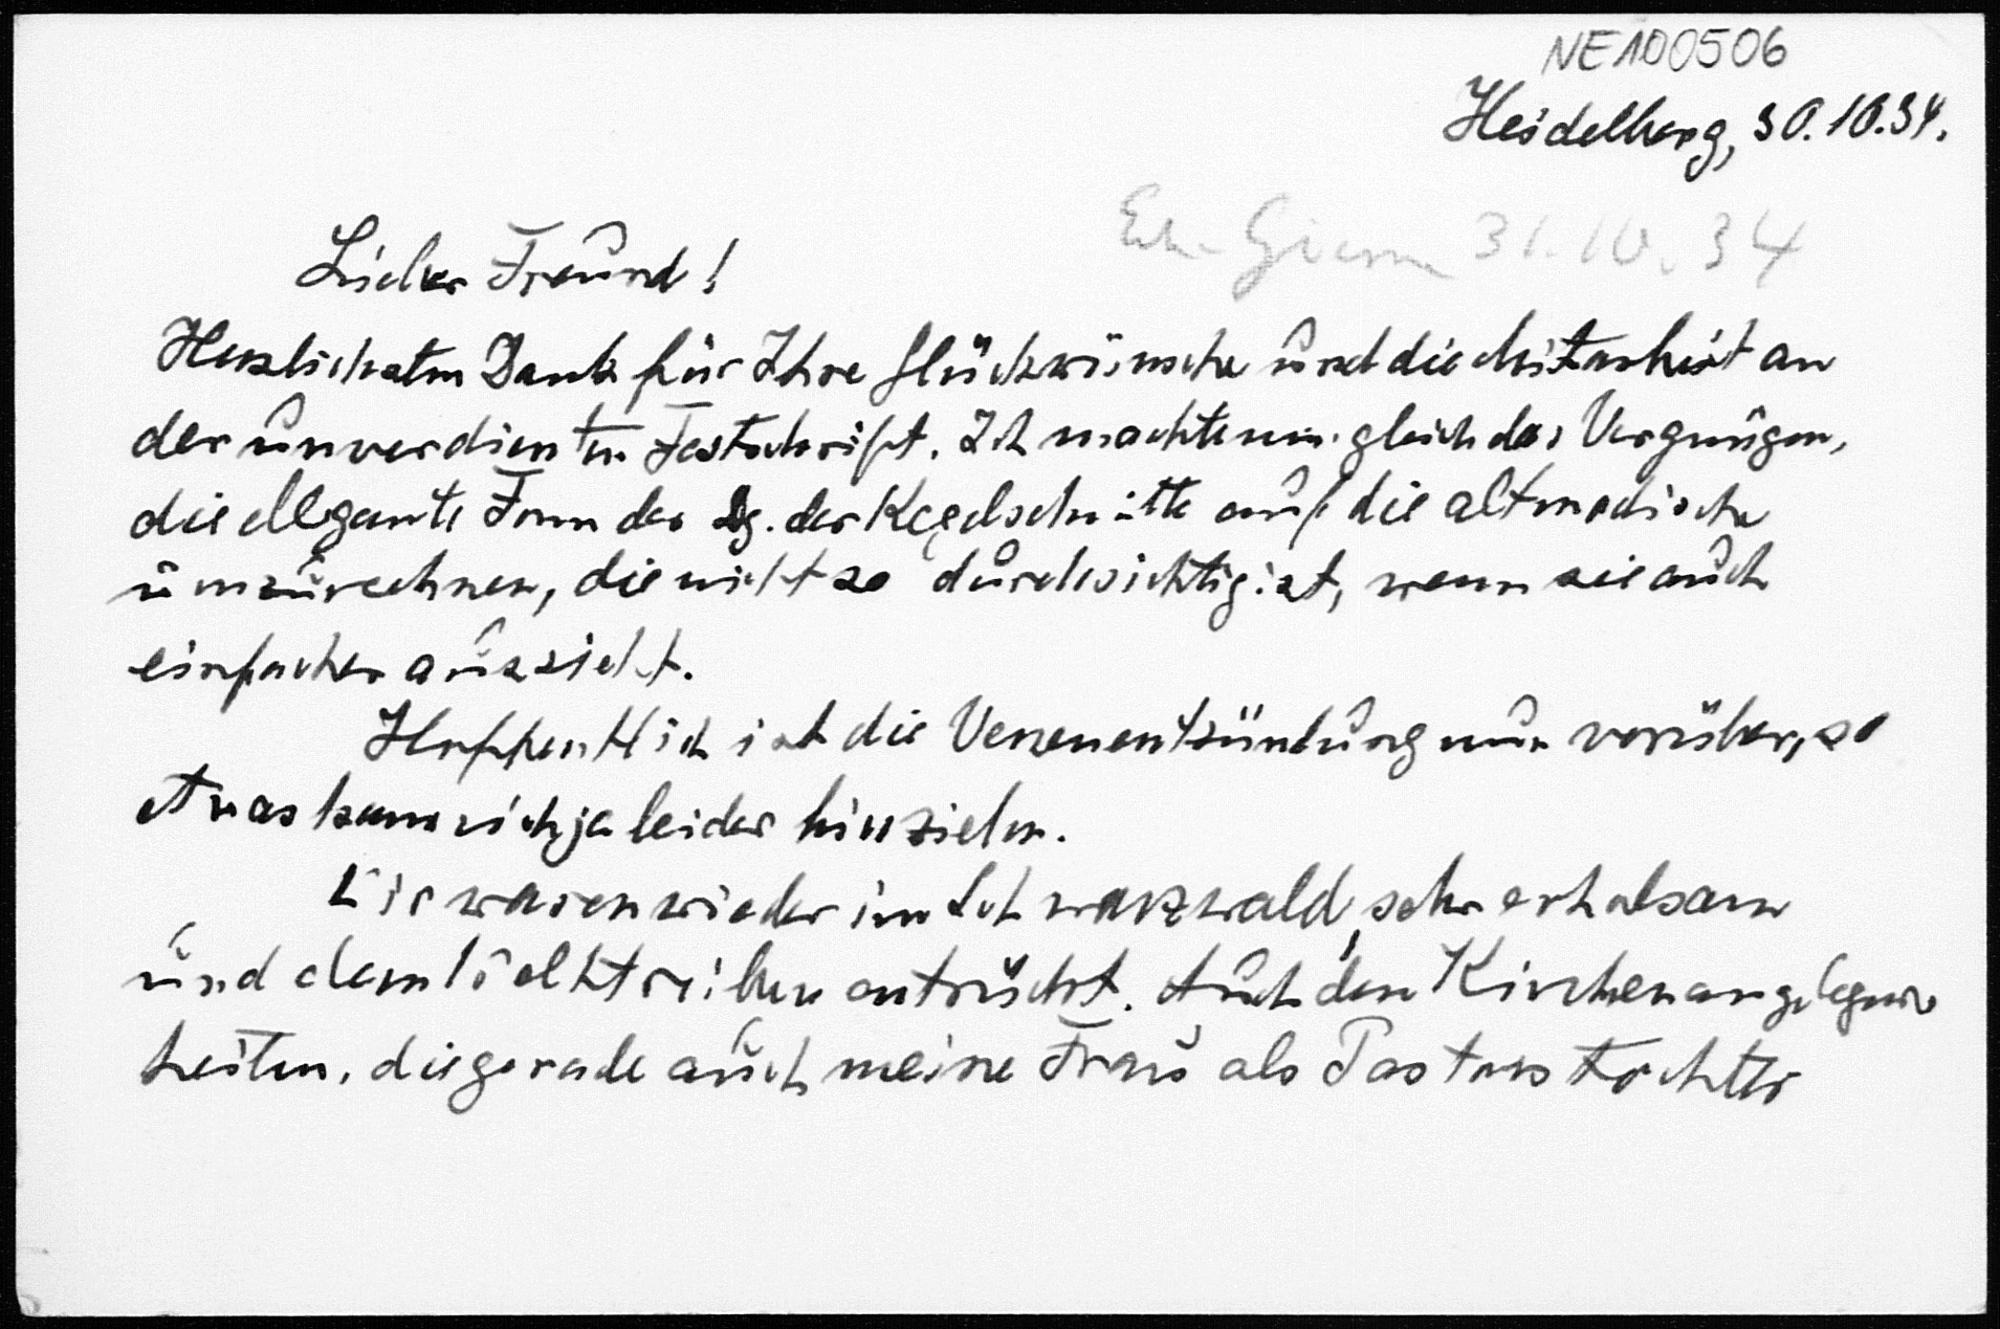 NE100506
Heidelberg, 30.10.34.
31.10.34
Lieber Freund!
Herzlichsten Dank für Ihre Glückwünsche und die Mitarbeit an
der unverdienten Festschrift. Ich machte mir gleich das Vergnügen,
die elegante Form der Dg. der Kegelschnitte auf die altmodische
umzurechnen, die nicht so durchsichtig ist, wenn sie auch
einfacher aussieht.
Hoffentlich ist die Venenentzündung nun vorüber, so
etwas kann sich ja leider hinziehn.
Wir waren wieder im Schwarzwald, sehr erholsam
und dem entrückt. Auch den Kirchenangelegen-
heiten, die gerade auch meine Frau als Pastorstochter